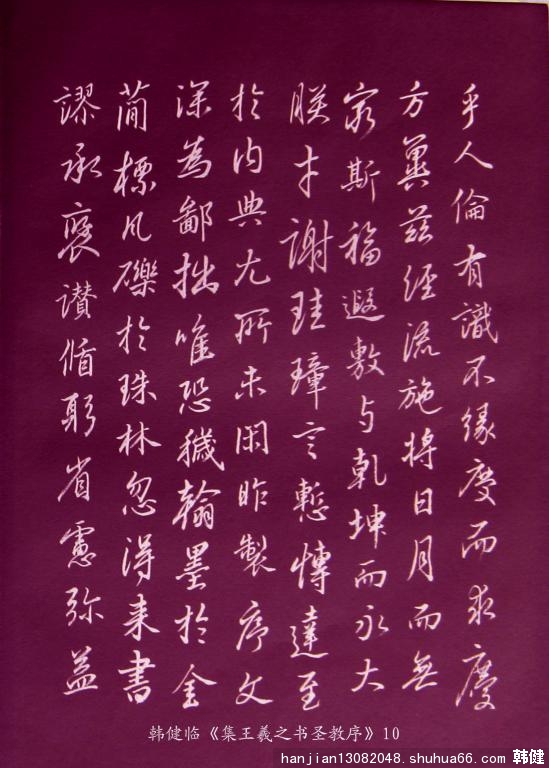 乎人倫有識不緣慶而求慶
方冀茲經流施將日月而無
窮斯福遐敷与乾坤而永大
朕才謝珪璋言慙博達至
於内典尤所未閑昨製序文
深為鄙拙唯恐穢翰墨於金
簡標瓦礫於珠林忽得来書
謬承褒讃循躬省慮弥益
韩健临《集王羲之书圣教序》10
hanjian13082048.shuhua66.com 韩健